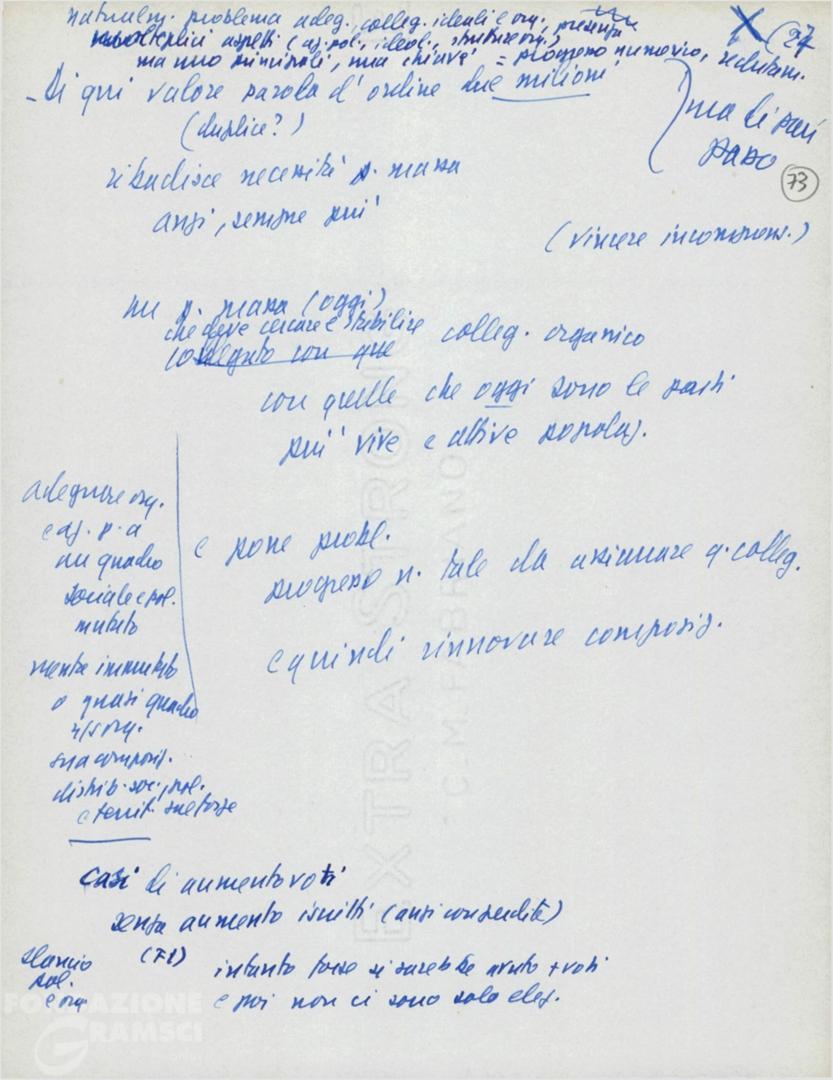 naturalm. problema adeg. colleg. ideali e org. presenta
molteplici aspetti (az. pol., ideol., strutture org.)
ma uno principale, una chiave = progresso numerico, reclutam.
X (27
- Di qui valore parola d'ordine due milioni
(duplice?)
ma di pari
passo
73
ribadisce necessità p. massa
anzi, sempre più
(vincere incomprens.)
un p. massa (oggi)
che deve cercare e stabilire colleg. organico
collegato con que
con quelle che oggi sono le parti
più vive e attive popolaz.
adeguare org.
e az. p. a
un quadro
sociale e pol.
mutato
mentre immutato
o quasi quadro
n/s org.
sua composiz.
distrib. soc., pol.
e territ. sue forze
e pone probl.
progresso n. tale da assicurare q. colleg.
e quindi rinnovare composiz.
casi di aumento voti
senza aumento iscritti (anzi con perdite)
slancio
pol.
e org
intanto forse si sarebbe avuto + voti
e poi non ci sono solo elez.
EXTRA STRONG
C.M. FABRIANO
FONDAZIONE
GRAMSCI